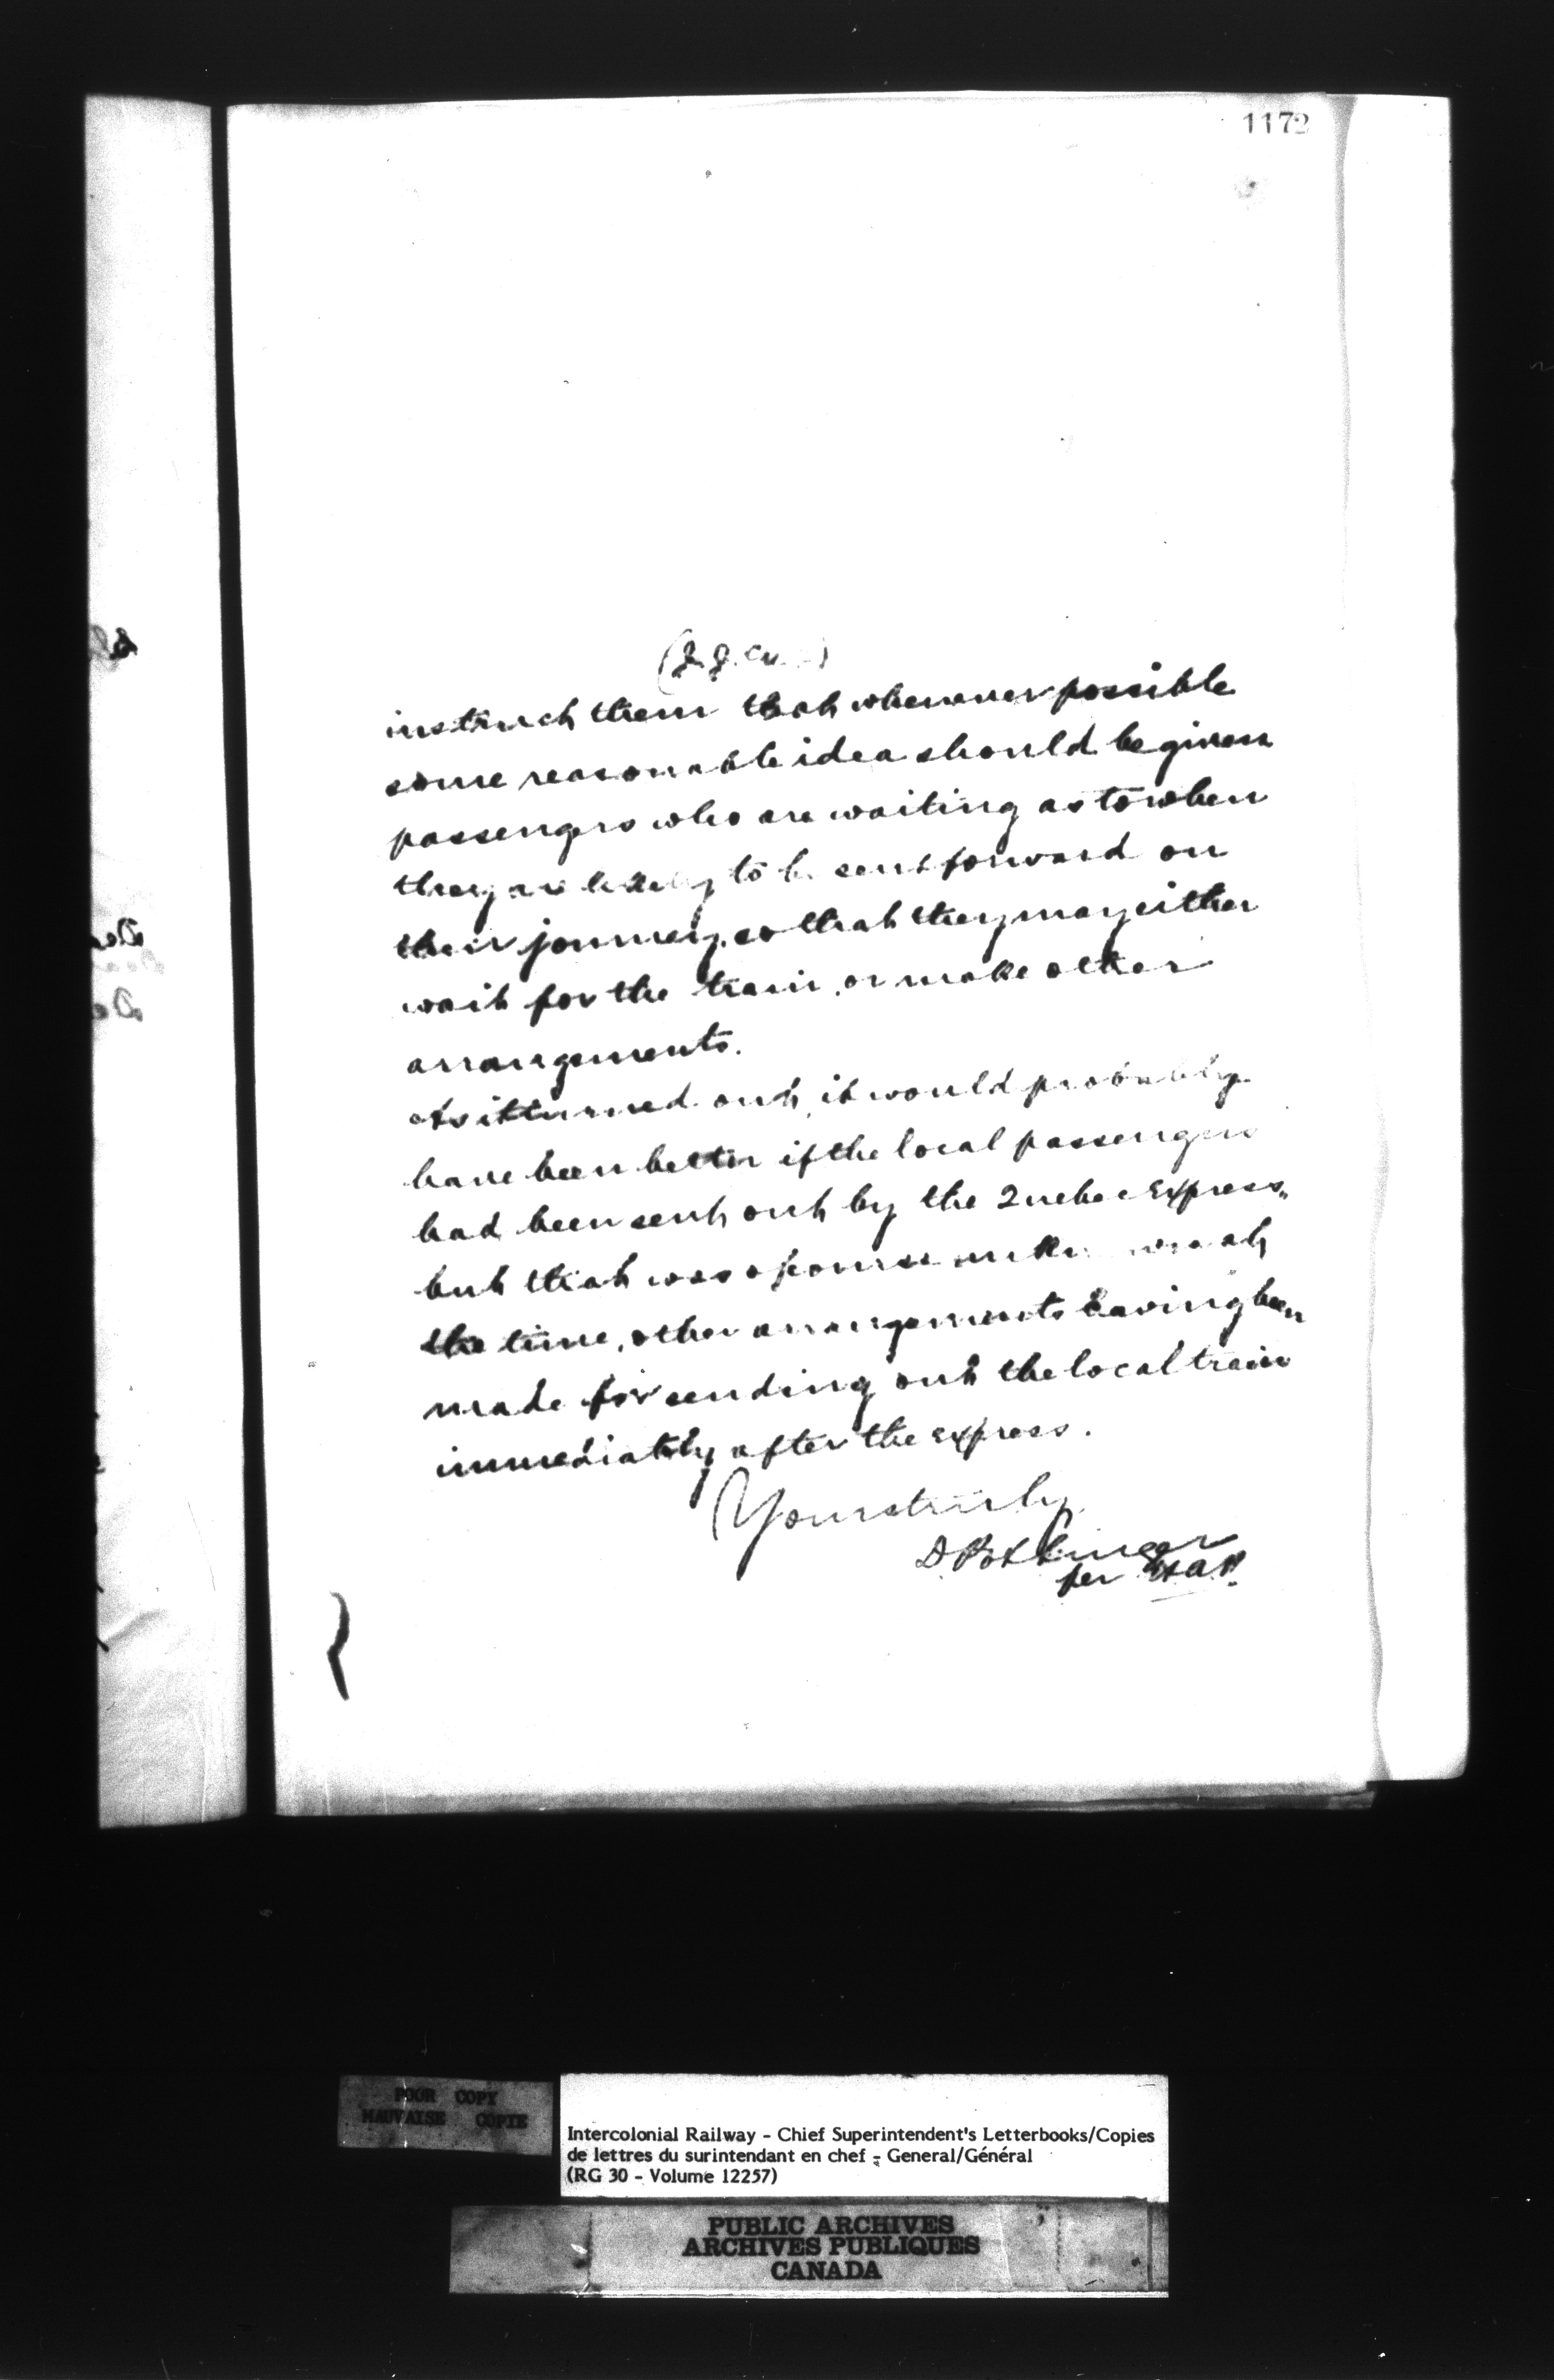 1172
(J.J.
instruct them that whenever possible
some reasonable idea should be given
passengers who are waiting as to when
they are likely to be sent forward on
their journey, so that they may either
wait for the train, or make other
arrangements.
As it turned out, it would probably
have been better if the local passengers
had been sent out by the Quebec Express,
but that was of course at
the time, other arrangements having been
made for sending out the local train
immediately after the express.
Yours truly
D Pottinger
per
POOR COPY
MAUVAISE COPIE
Intercolonial Railway - Chief Superintendent's Letterbooks/Copies
de lettres du surintendant en chef - General/Général
(RG 30 - Volume 12257)
PUBLIC ARCHIVES
ARCHIVES PUBLIQUES
CANADA